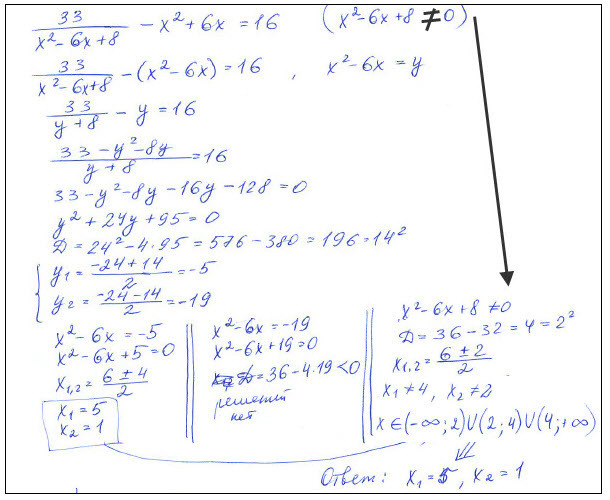 33/(x²-6x+8) - x²+6x = 16 (x²-6x+8 ≠ 0)
33/(x²-6x+8) - (x²-6x) = 16 , x²-6x = y
33/(y+8) - y = 16
(33-y²-8y)/(y+8) = 16
33-y²-8y-16y-128=0
y²+24y+95=0
D=24²-4·95=576-380=196=14²
y₁=(-24+14)/2=-5
y₂=(-24-14)/2=-19
x²-6x=-5
x²-6x+5=0
x₁,₂=(6±4)/2
x₁=5
x₂=1
x²-6x=-19
x²-6x+19=0
D=36-4·19<0
решений
нет
x²-6x+8≠0
D=36-32=4=2²
x₁,₂=(6±2)/2
x₁≠4, x₂≠2
x∈(-∞;2)∪(2;4)∪(4;+∞)
Ответ: x₁=5, x₂=1